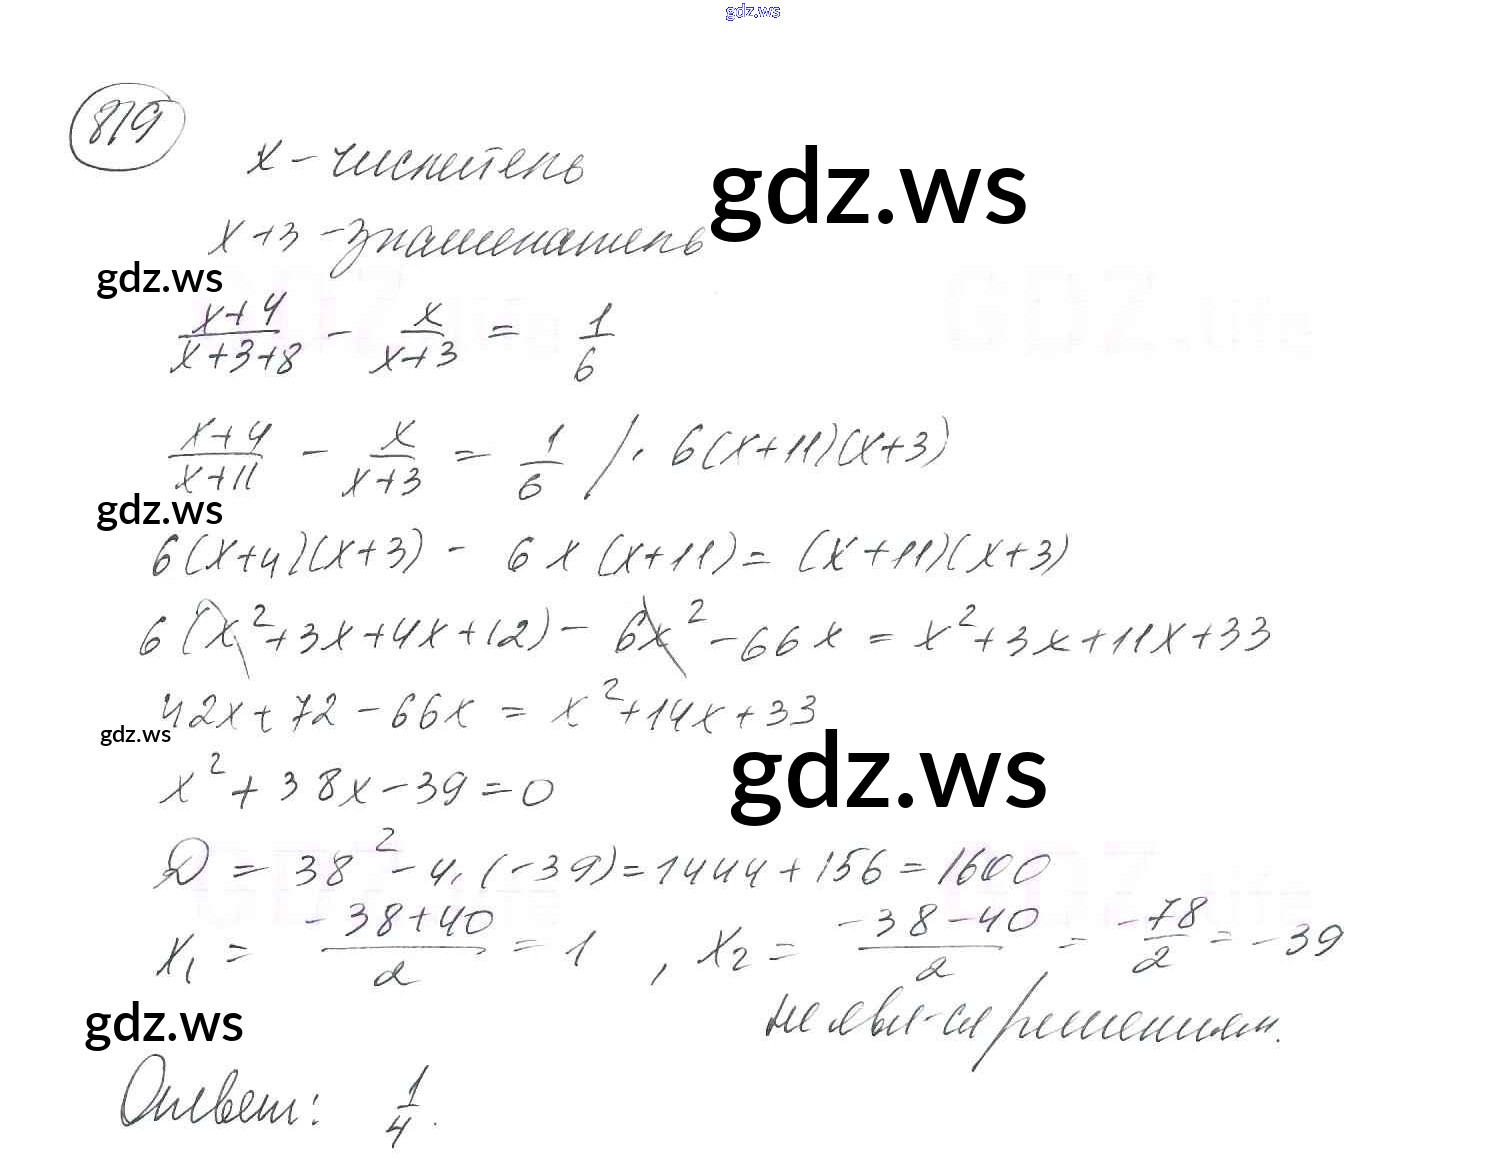 gdz.ws
819
x - числитель
gdz.ws
x+3 - знаменатель
gdz.ws
(x+4)/(x+3+8) - x/(x+3) = 1/6
(x+4)/(x+11) - x/(x+3) = 1/6 /· 6(x+11)(x+3)
gdz.ws
6(x+4)(x+3) - 6x(x+11) = (x+11)(x+3)
6(x²+3x+4x+12) - 6x² - 66x = x²+3x+11x+33
42x+72-66x = x²+14x+33
gdz.ws
gdz.ws
x²+38x-39=0
D = 38²-4·(-39)=1444+156=1600
x₁ = (-38+40)/2 = 1, x₂ = (-38-40)/2 = -78/2 = -39
не явл-ся решением.
gdz.ws
Ответ: 1/4.